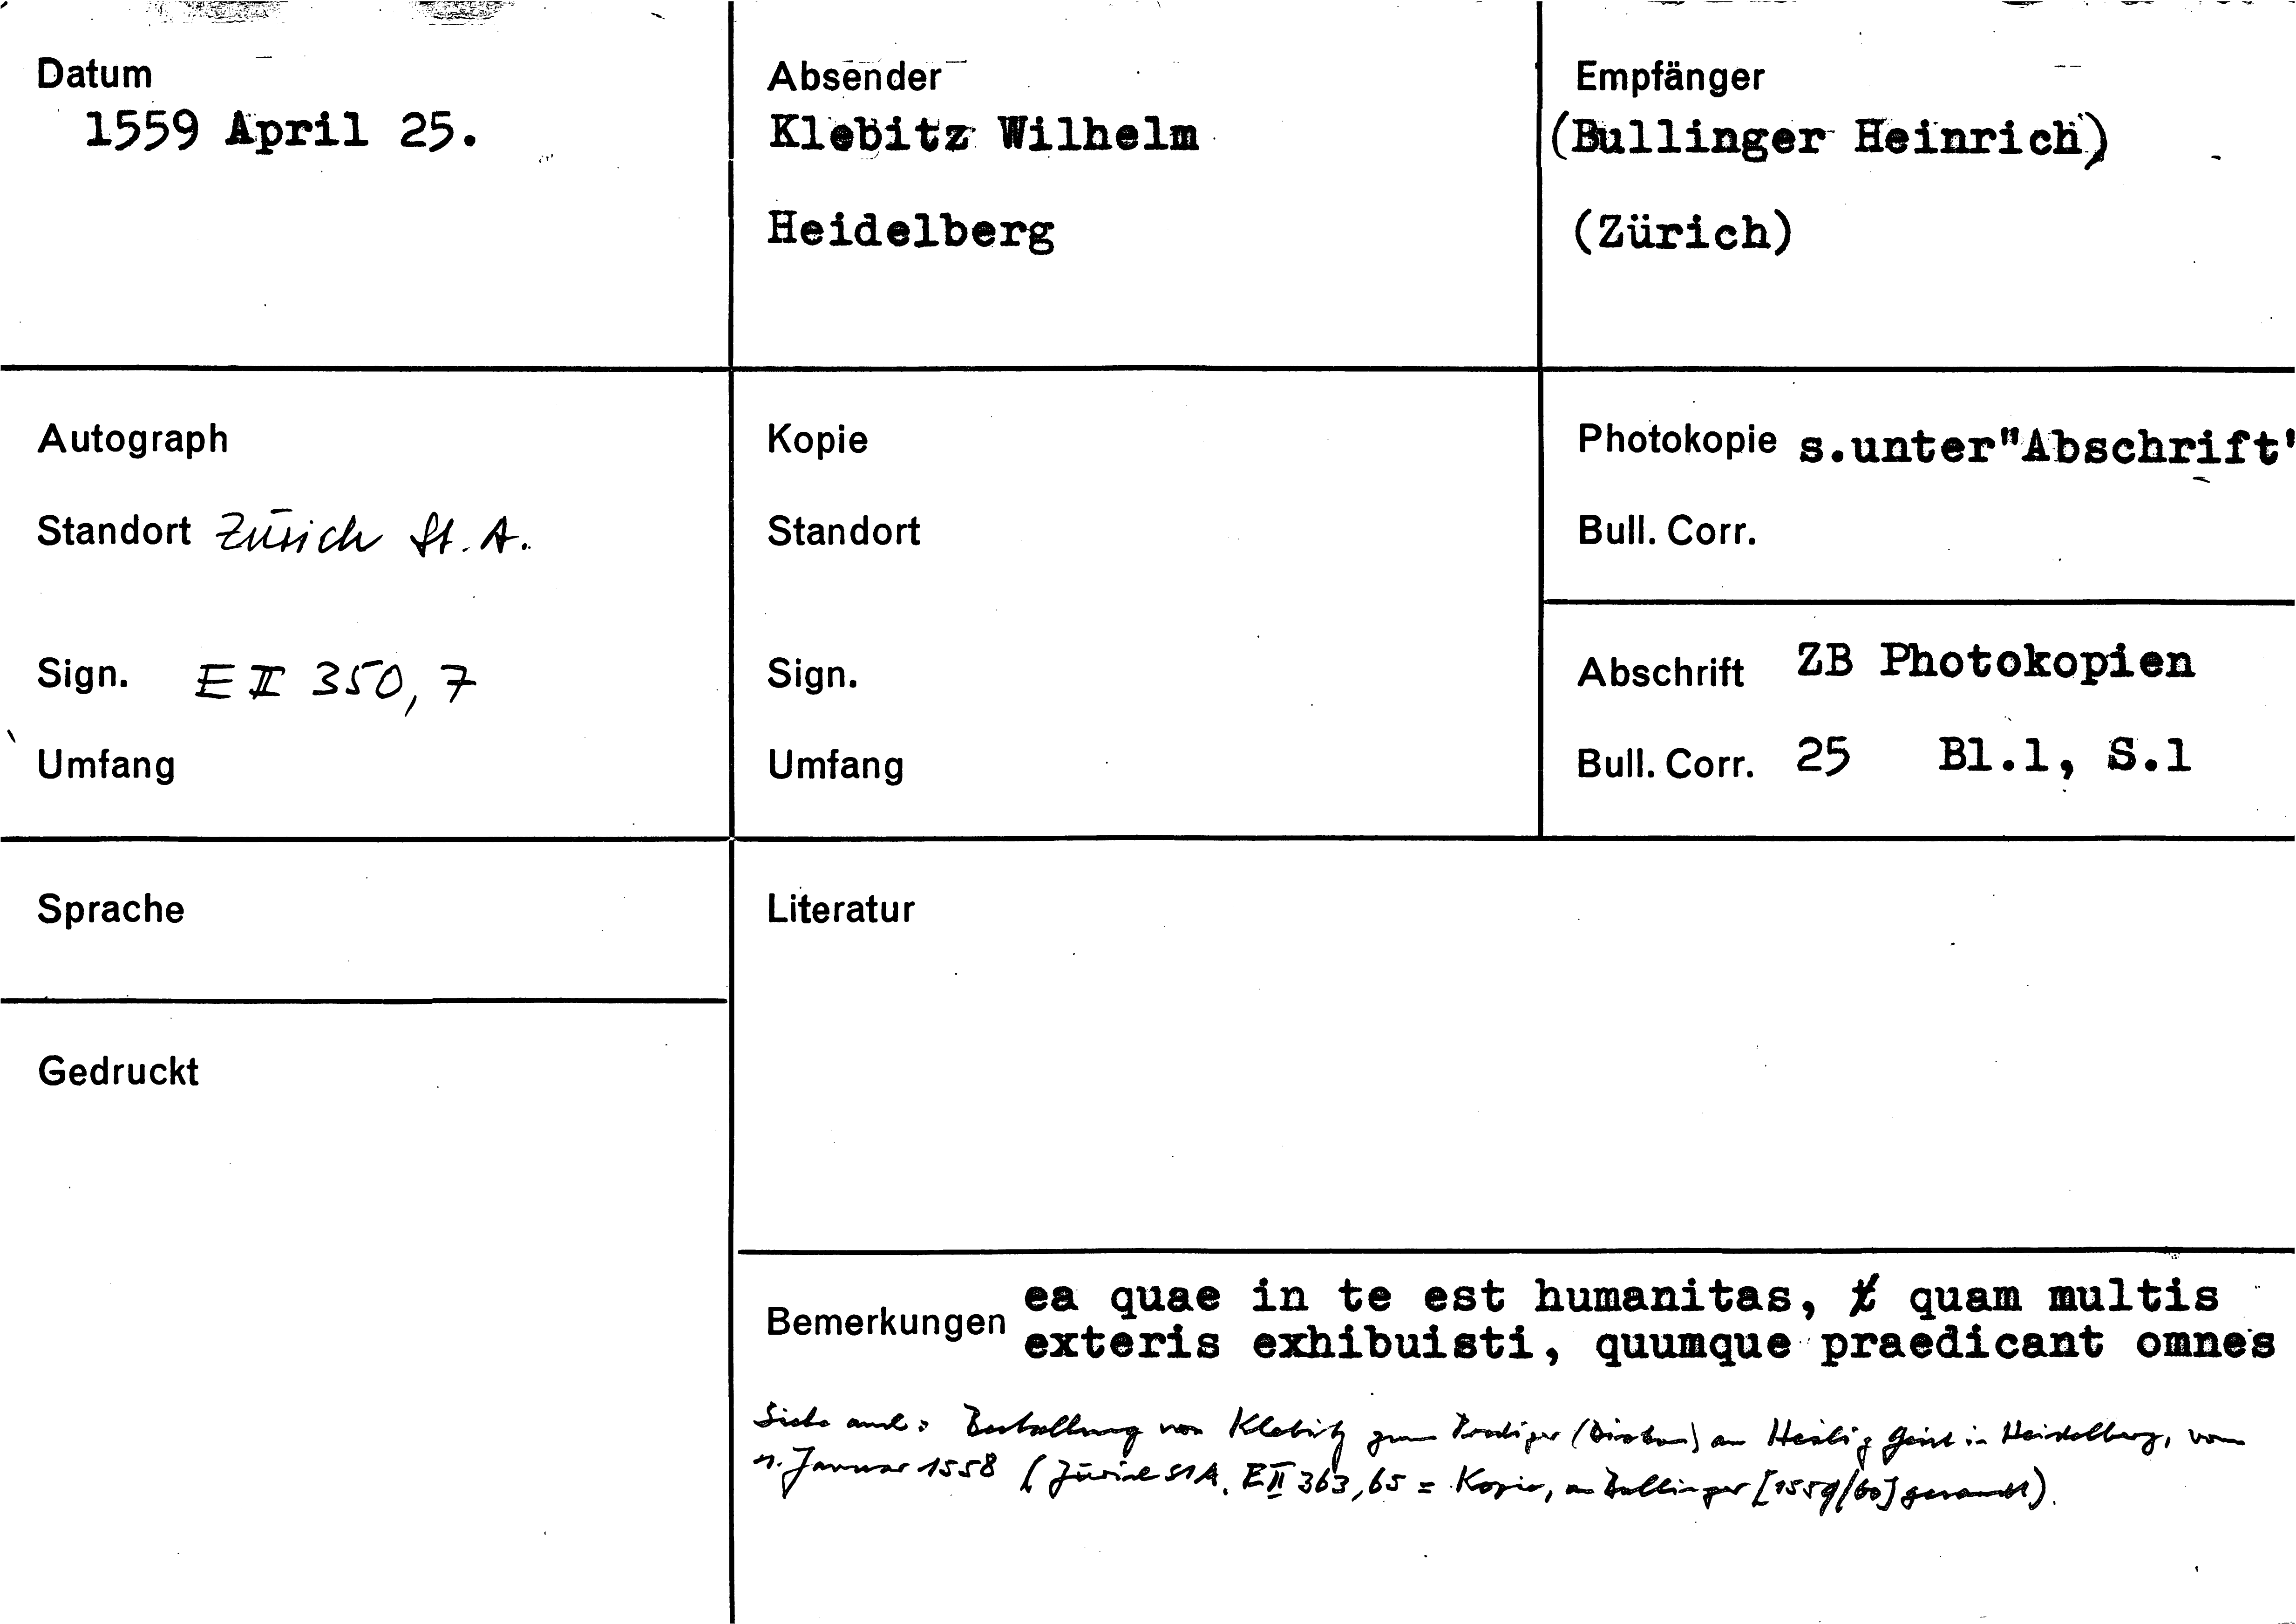 Datum
1559 April 25.
Absender
Klebitz Wilhelm
Heidelberg
Empfänger
(Bullinger Heinrich)
(Zürich)
Autograph
Standort Zürich St. A.
Sign. E II 350, 7
Umfang
Kopie
Standort
Sign.
Umfang
Photokopie s.unter"Abschrift"
Bull. Corr.
Abschrift ZB Photokopien
Bull. Corr. 25 Bl.1, S.1
Sprache
Gedruckt
Literatur
Bemerkungen ea quae in te est humanitas, quam multis
exteris exhibuisti, quumque praedicant omnes
Siehe auch: Bestallung von Klebitz zum Prediger (Diakon) an Heilig Geist in Heidelberg, vom
Januar 1558 (Zürich StA, E II 363, 65 = Kopie, an Bullinger [1559/60] gesandt).